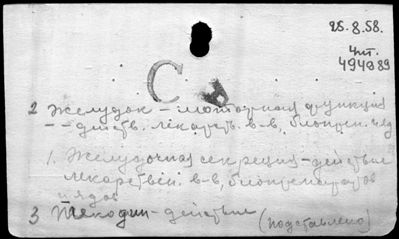 28.8.58.
Чит.
494989
С
2 Желудок - моторная функция
- - действ. лекарств. в-в, биопреп. и яд
1. Желудочная секреция - действие
лекарствен. в-в, биопрепаратов
и ядов
3 Текодин - действие (подставлено)